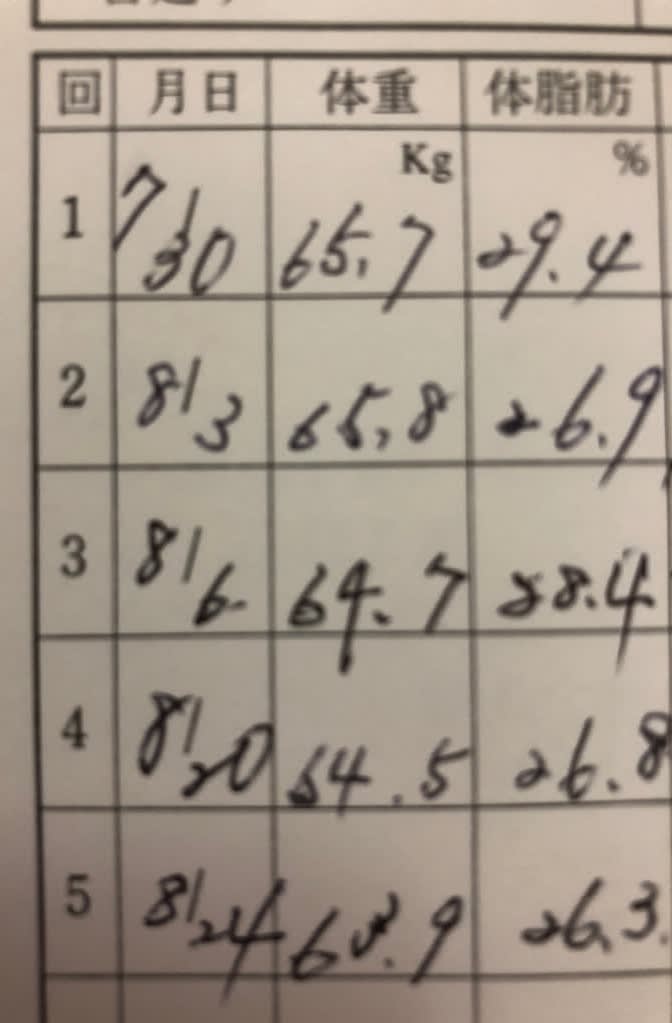 回 月日 体重 体脂肪
Kg %
1 7/30 65.7 29.4
2 8/3 65.8 26.9
3 8/6 64.7 28.4
4 8/20 64.5 26.8
5 8/24 63.9 26.3